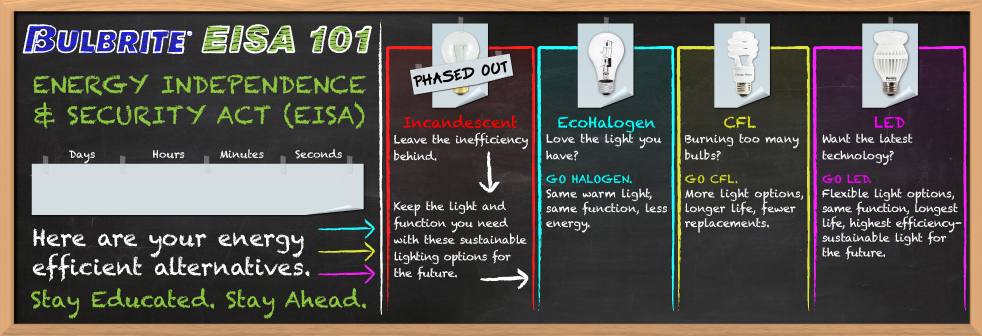 BULBRITE® EISA 101
ENERGY INDEPENDENCE
& SECURITY ACT (EISA)
Days Hours Minutes Seconds
Here are your energy
efficient alternatives.
Stay Educated. Stay Ahead.
PHASED OUT
Incandescent
Leave the inefficiency
behind.
Keep the light and
function you need
with these sustainable
lighting options for
the future.
EcoHalogen
Love the light you
have?
GO HALOGEN.
Same warm light,
same function, less
energy.
CFL
Burning too many
bulbs?
GO CFL.
More light options,
longer life, fewer
replacements.
LED
Want the latest
technology?
GO LED.
Flexible light options,
same function, longest
life, highest efficiency-
sustainable light for
the future.